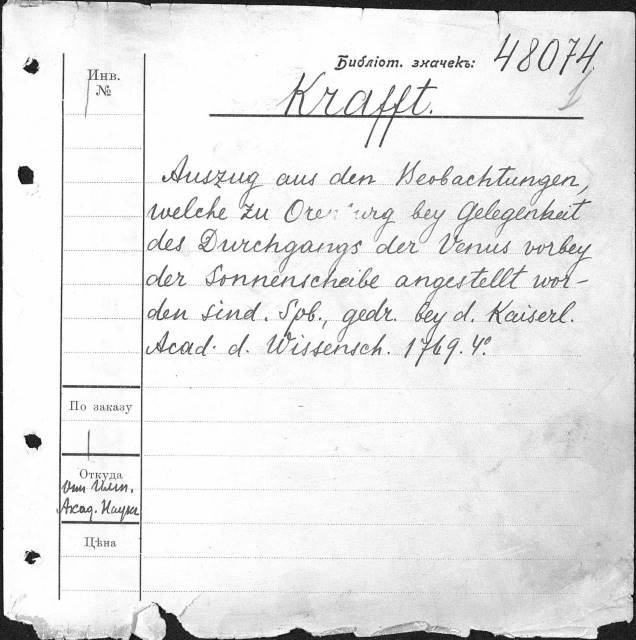 Библіот. значекъ: 48074
Инв.
№
Krafft.
Auszug aus den Beobachtungen,
welche zu Orenburg bey Gelegenheit
des Durchgangs der Venus vorbey
der Sonnenscheibe angestellt wor-
den sind. Spb., gedr. bey d. Kaiserl.
Acad. d. Wissensch. 1769. 4º.
По заказу
Откуда
Акад. Наукъ
Цѣна